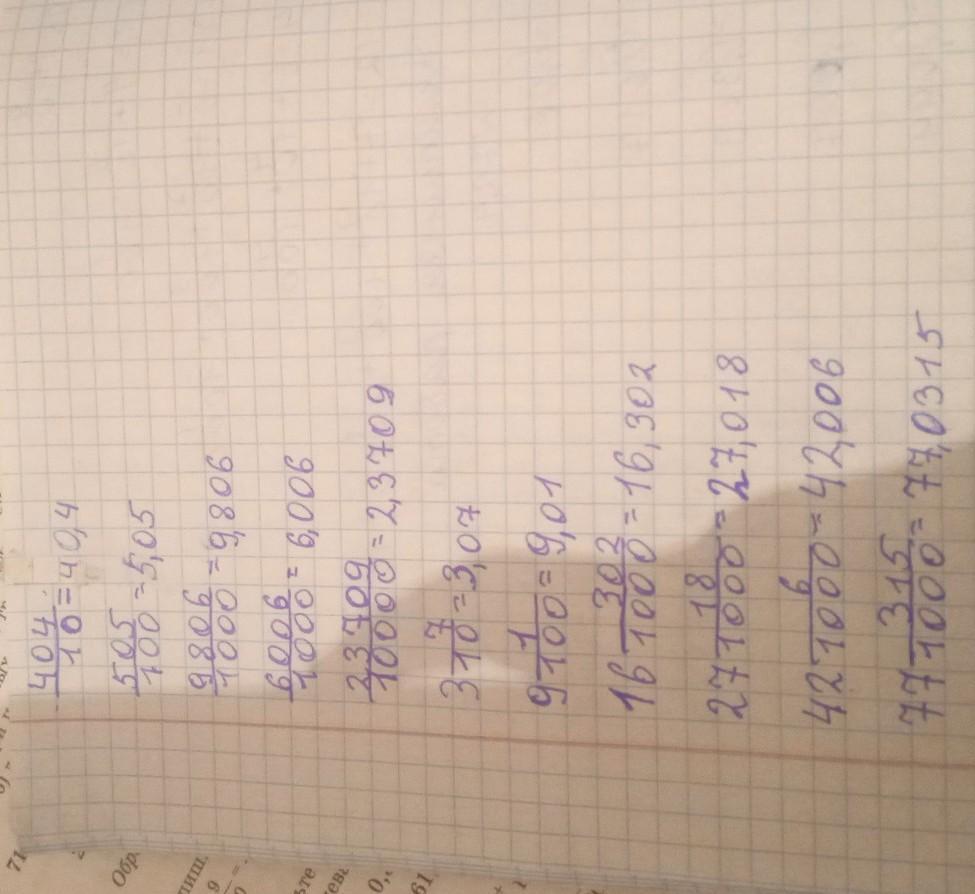 404/10 = 40,4
505/100 = 5,05
9806/1000 = 9,806
6006/1000 = 6,006
23709/10000 = 2,3709
3 7/10 = 3,07
9 1/100 = 9,01
16 302/1000 = 16,302
27 18/1000 = 27,018
42 6/1000 = 42,006
77 315/1000 = 77,0315
71
Обр
пиш.
9
ьте
0,
61